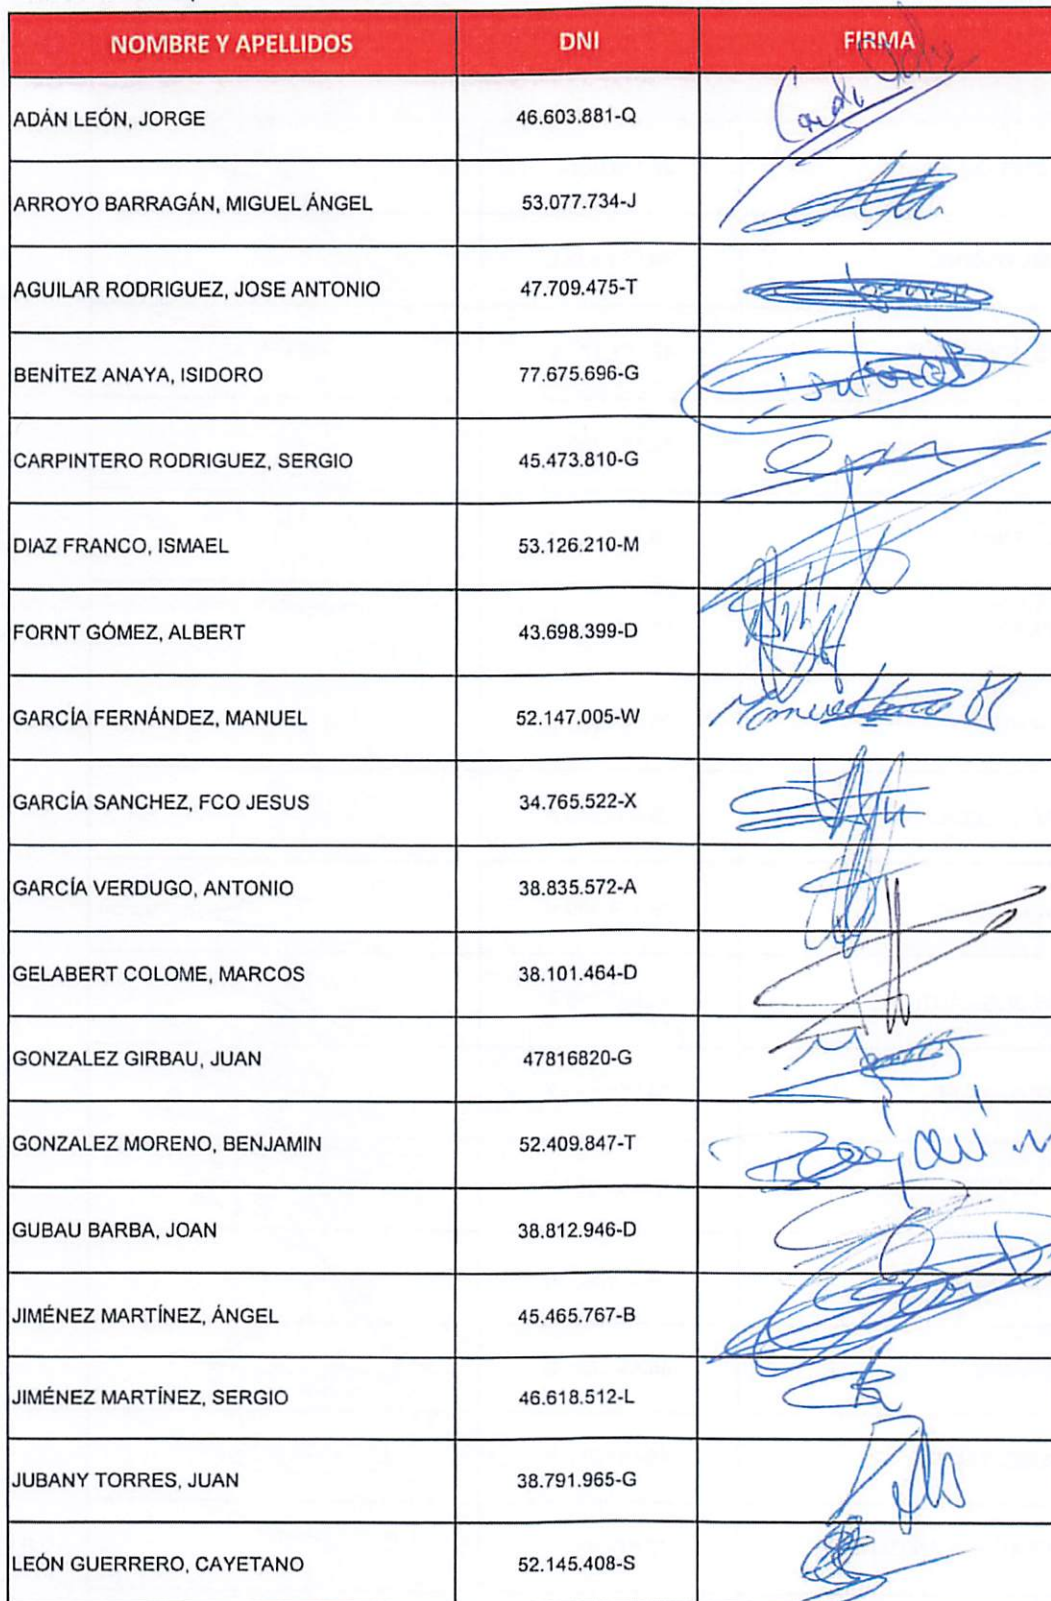 NOMBRE Y APELLIDOS DNI FIRMA
ADÁN LEÓN, JORGE 46.603.881-Q
ARROYO BARRAGÁN, MIGUEL ÁNGEL 53.077.734-J
AGUILAR RODRIGUEZ, JOSE ANTONIO 47.709.475-T
BENÍTEZ ANAYA, ISIDORO 77.675.696-G
CARPINTERO RODRIGUEZ, SERGIO 45.473.810-G
DIAZ FRANCO, ISMAEL 53.126.210-M
FORNT GÓMEZ, ALBERT 43.698.399-D
GARCÍA FERNÁNDEZ, MANUEL 52.147.005-W
GARCÍA SANCHEZ, FCO JESUS 34.765.522-X
GARCÍA VERDUGO, ANTONIO 38.835.572-A
GELABERT COLOME, MARCOS 38.101.464-D
GONZALEZ GIRBAU, JUAN 47816820-G
GONZALEZ MORENO, BENJAMIN 52.409.847-T
GUBAU BARBA, JOAN 38.812.946-D
JIMÉNEZ MARTÍNEZ, ÁNGEL 45.465.767-B
JIMÉNEZ MARTÍNEZ, SERGIO 46.618.512-L
JUBANY TORRES, JUAN 38.791.965-G
LEÓN GUERRERO, CAYETANO 52.145.408-S